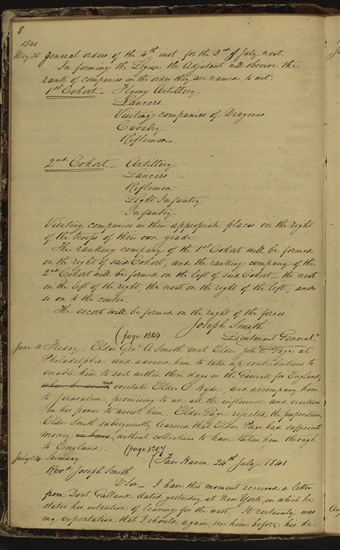 8
1841
May 25 general orders of the 4th inst for the 3rd of July next.
In forming the Legion the Adjutant will observe the
rank of companies in the order they are named to wit.
1st Cohort – Flying Artillery
Lancers
Visiting companies of Dragoons
Cavalry
Riflemen
2nd Cohort – Artillery
Lancers
Riflemen
Light Infantry
Infantry
Visiting companies in their appropriate places on the right
of the troops of their own grade.
The ranking company of the 1st Cohort will be formed
on the right of said Cohort, and the ranking company of the
2nd Cohort will be formed on the left of said Cohort, the next
on the left of the right the next on the right of the left, and
so on to the centre.
The escort will be formed on the right of the forces
Joseph Smith
Lieutenant General
(page 1204
June 11 Friday Elder Geo. A Smith met Elder John E Page at
Philadelphia and advised him to take up contributions to
enable him to sail within three days in the for England,
overtake Elder O. Hyde and accompany him
to Jerusalem promising to use all the influence and exertion
in his power to assist him. Elder Page rejected the proposition
Elder Smith subsequently learned that Elder Page had sufficient
money without collections to have taken him through
to England. (page 1207
July 24 Saturday (Fair Haven 24th July 1841
Revd Joseph Smith
D Sir – I have this moment received a letter
from Doct Galland dated yesterday at New York in which he
states his intention of leaving for the west. It certainly was
my expectation that I should again see him before his de-